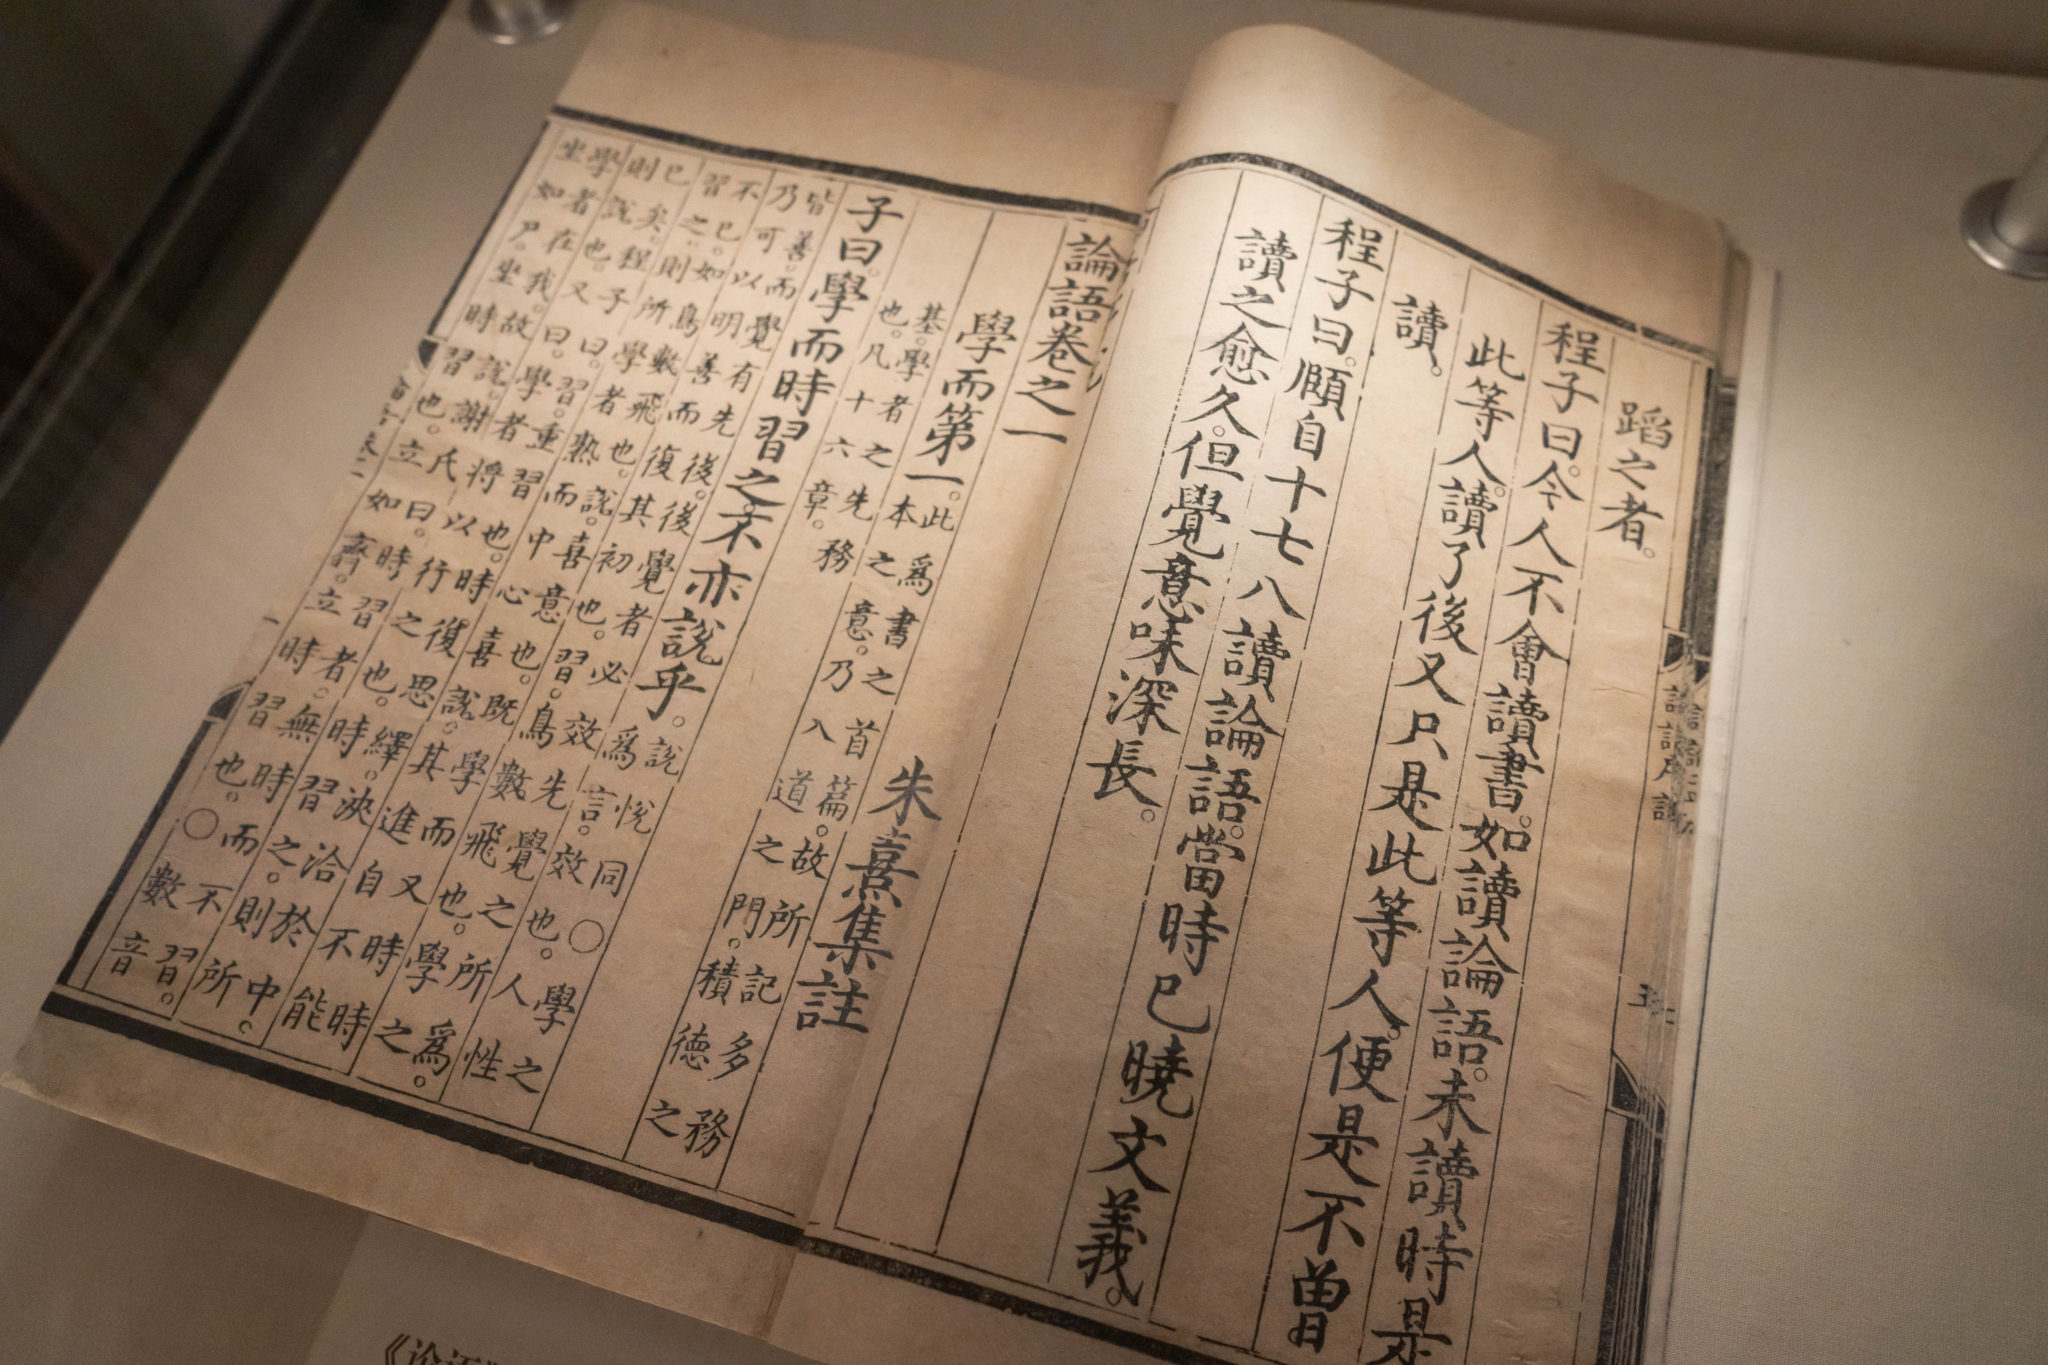 蹈之者。
程子曰。今人不會讀書。如讀論語。未讀時是
此等人。讀了後又只是此等人。便是不曾
讀。
程子曰。頤自十七八讀論語。當時已曉文義。
讀之愈久。但覺意味深長。
論語卷之一 朱熹集註
學而第一。此為書之首篇。故所記多務
本之意。乃入道之門。積德之
基。學者之先務
也。凡十六章。
子曰。學而時習之。不亦說乎。說悅同○學之
為言。效也。人性
皆善。而覺有先後。後覺者必效先覺之所為。
乃可以明善而復其初也。習。鳥數飛也。學之
不已。如鳥數飛也。說。喜意也。既學而又時
習之。則所學者熟。而中心喜說。其進自不能
已矣。程子曰。習。重習也。時復思繹。浹洽於中。
則說也。又曰。學者將以行之也。時習之。則所
學者在我。故說。謝氏曰。時習者。無時而不習。
坐如尸。坐時習也。立如齊。立時習也。○數音